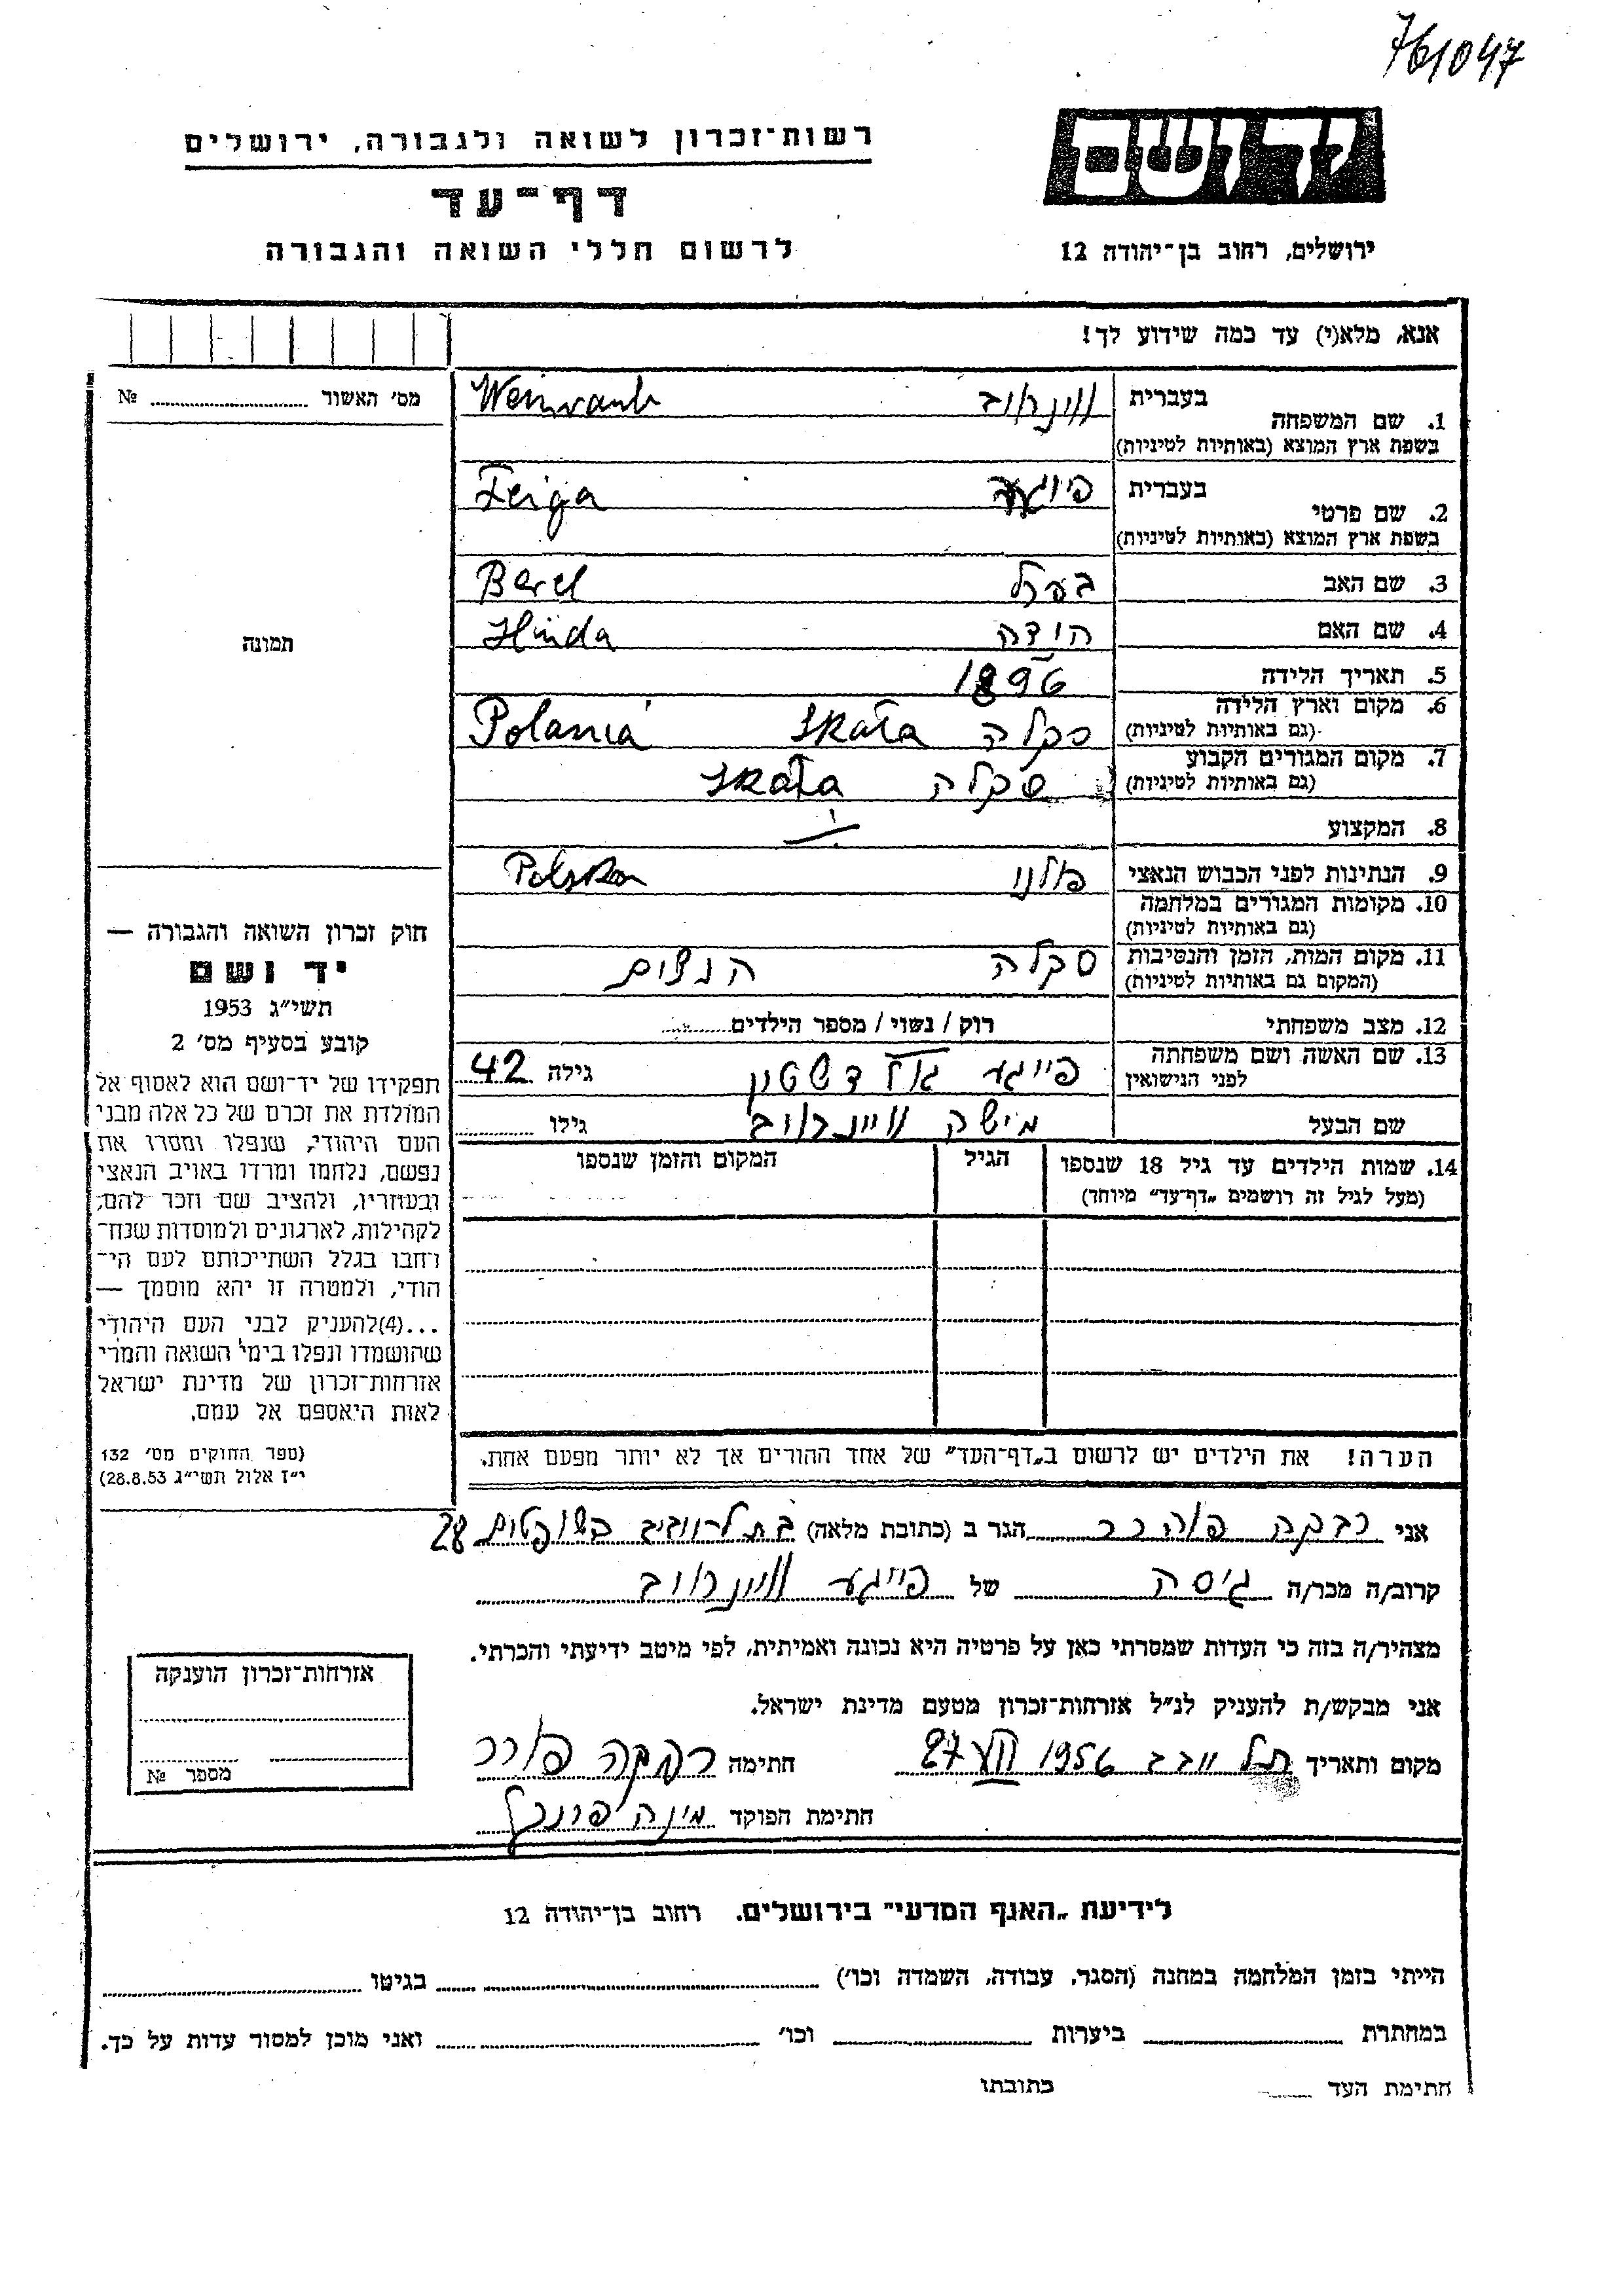 761047
רשות־זכרון לשואה ולגבורה, ירושלים
יד ושם
דף־עד
לרשום חללי השואה והגבורה
ירושלים, רחוב בן־יהודה 12
אנא, מלא(י) עד כמה שידוע לך!
מס' האשור № 
בעברית
1. שם המשפחה
בשפת ארץ המוצא (באותיות לטיניות)
וויינראוב Weinraub
בעברית
2. שם פרטי
בשפת ארץ המוצא (באותיות לטיניות)
פייגע Feiga
3. שם האב בערל Berel
4. שם האם הינדה Hinda
5. תאריך הלידה 1896
6. מקום וארץ הלידה
(גם באותיות לטיניות)
סקלה Skała Polania
7. מקום המגורים הקבוע
(גם באותיות לטיניות)
סקלה Skała
8. המקצוע
9. הנתינות לפני הכבוש הנאצי פולני Polska
10. מקומות המגורים במלחמה
(גם באותיות לטיניות)
11. מקום המות, הזמן והנסיבות
(המקום גם באותיות לטיניות)
סקלה הנצים
12. מצב משפחתי רוק / נשוי / מספר הילדים
13. שם האשה ושם משפחתה
לפני הנישואין
פייגע גולדשטיין גילה 42
שם הבעל מישה וויינראוב גילו
14. שמות הילדים עד גיל 18 שנספו
(מעל לגיל זה רושמים „דף־עד" מיוחד)
הגיל
המקום והזמן שנספו
הערה! את הילדים יש לרשום ב„דף־העד" של אחד ההורים אך לא יותר מפעם אחת.
תמונה
חוק זכרון השואה והגבורה —
יד ושם
תשי"ג 1953
קובע בסעיף מס' 2
תפקידו של יד־ושם הוא לאסוף אל
המולדת את זכרם של כל אלה מבני
העם היהודי, שנפלו ומסרו את
נפשם, נלחמו ומרדו באויב הנאצי
ובעוזריו, ולהציב שם וזכר להם,
לקהילות, לארגונים ולמוסדות שנח־
רבו בגלל השתייכותם לעם הי־
הודי, ולמטרה זו יהא מוסמך —
...(4)להעניק לבני העם היהודי
שהושמדו ונפלו בימי השואה והמרי
אזרחות־זכרון של מדינת ישראל
לאות היאספם אל עמם.
(ספר החוקים מס' 132
י"ז אלול תשי"ג 28.8.53)
אני רבקה הגר ב (כתובת מלאה) 28
קרוב/ה מכר/ה גיסה של פייגע וויינראוב
מצהיר/ה בזה כי העדות שמסרתי כאן על פרטיה היא נכונה ואמיתית, לפי מיטב ידיעתי והכרתי.
אני מבקש/ת להעניק לנ"ל אזרחות־זכרון מטעם מדינת ישראל.
מקום ותאריך תל אביב 1956 27 חתימה רבקה
חתימת הפוקד מינה
אזרחות־זכרון הוענקה
מספר №
לידיעת „האגף המדעי" בירושלים. רחוב בן־יהודה 12
הייתי בזמן המלחמה במחנה (הסגר, עבודה, השמדה וכו') בגיטו
במחתרת ביערות וכו' ואני מוכן למסור עדות על כך.
חתימת העד כתובתו